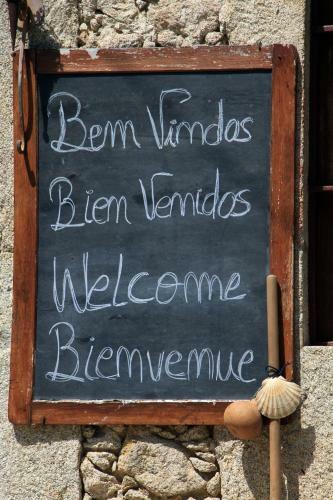 Bem Vindos
Bien Venidos
Welcome
Bienvenue